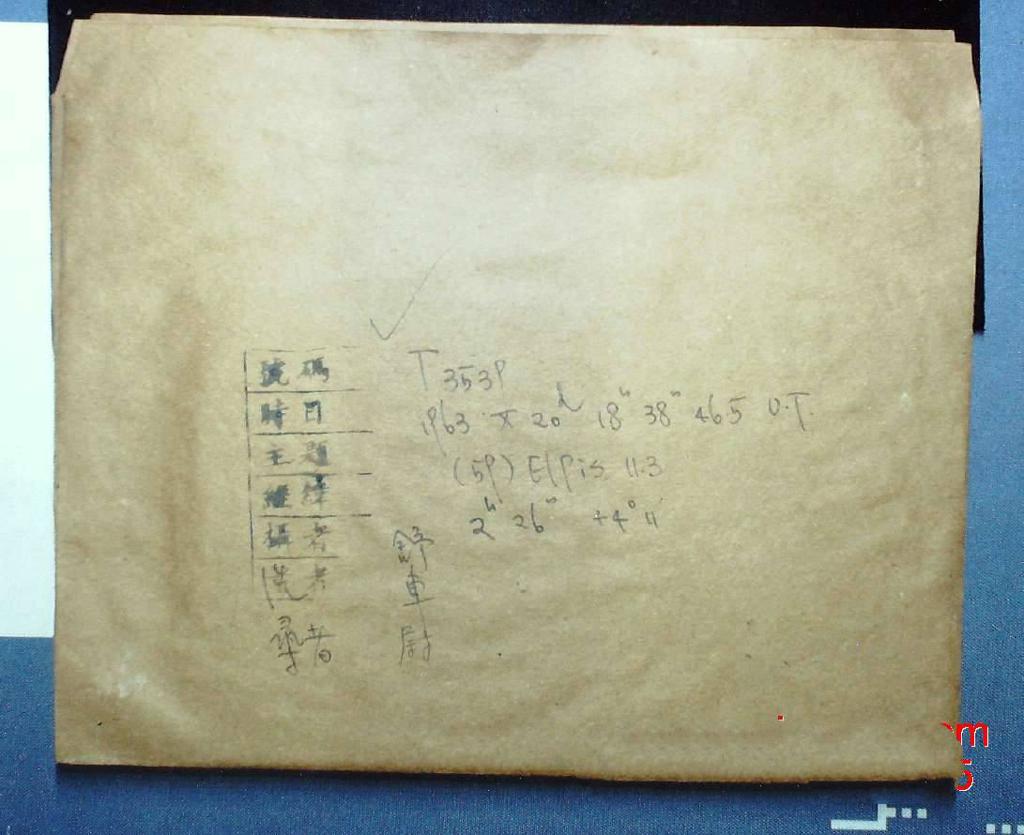 號碼 T 3539
時日 1963 X 20d 18h 38m 46.5 U.T.
主題 (59) Elpis 11.3
經緯 2h 26m +4° 11'
攝者 舒
洗者 車
尋者 尉